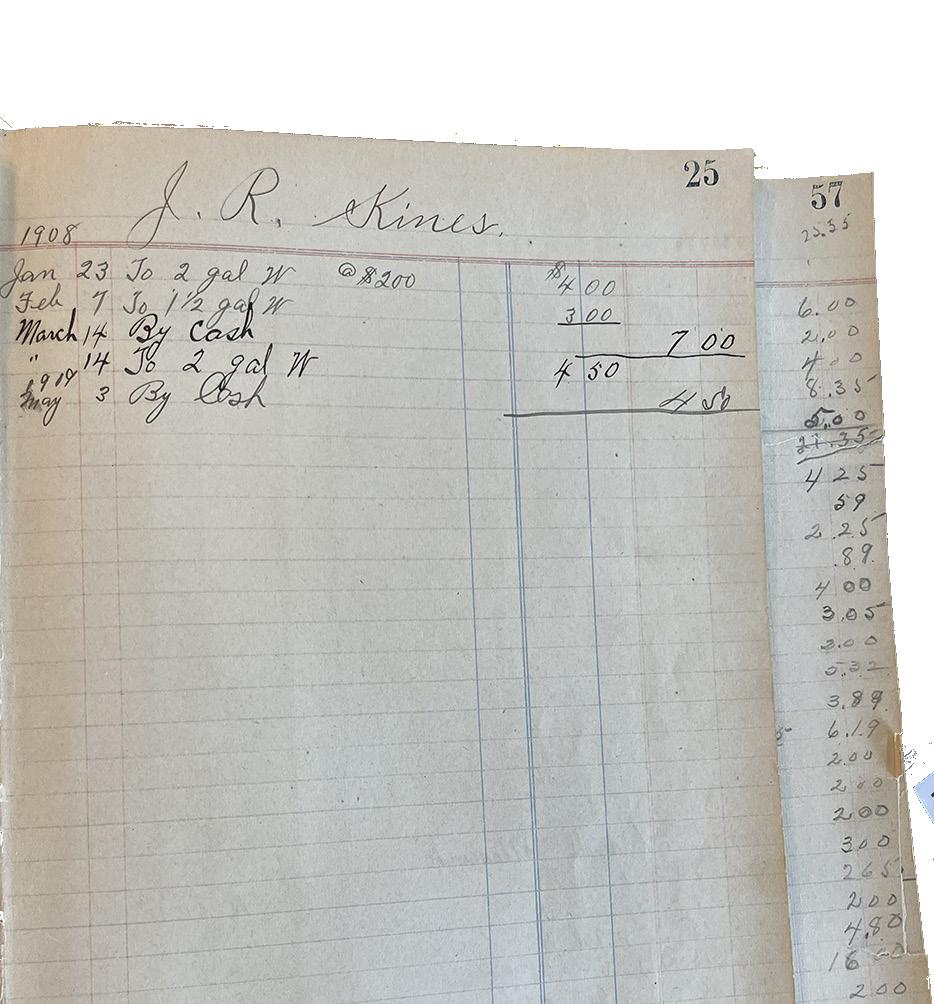 25
J. R. Kines.
1908
Jan 23 To 2 gal W @ $200 $4 00
Feb 7 To 1 1/2 gal W 3 00
March 14 By Cash 7 00
" 14 To 2 gal W 4 50
May 3 By Cash 4 50
57
25.35
6.00
2.00
4 00
8.35
5.00
21.35
4 25
59
2.25
.89
4 00
3.05
3.00
5.32
3.89
6.19
2.00
2 00
2 00
3 00
2 65
2 00
4.80
16 00
2 00